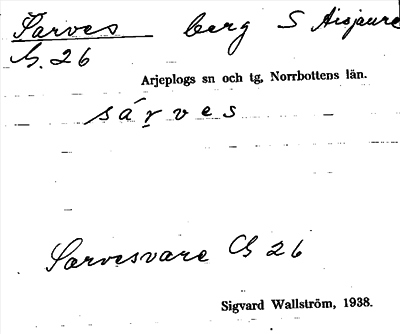 Sarves berg S Aisjaure
G. 26
Arjeplogs sn och tg, Norrbottens län.
sárves
Sarvesvare G 26
Sigvard Wallström, 1938.